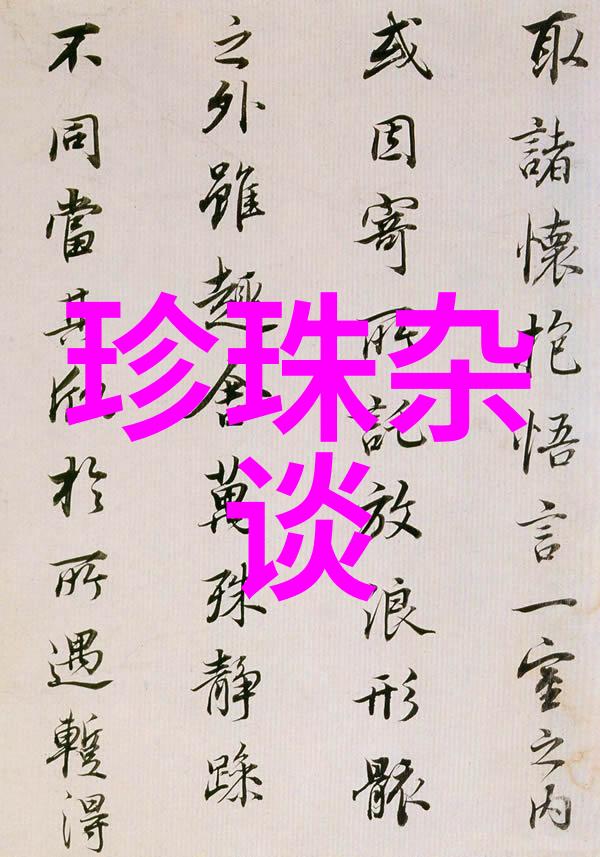 取諸懷抱悟言一室之内
或因寄所託放浪形骸
之外雖趣舍萬殊静躁
不同當其欣於所遇蹔得
珍珠杂
谈